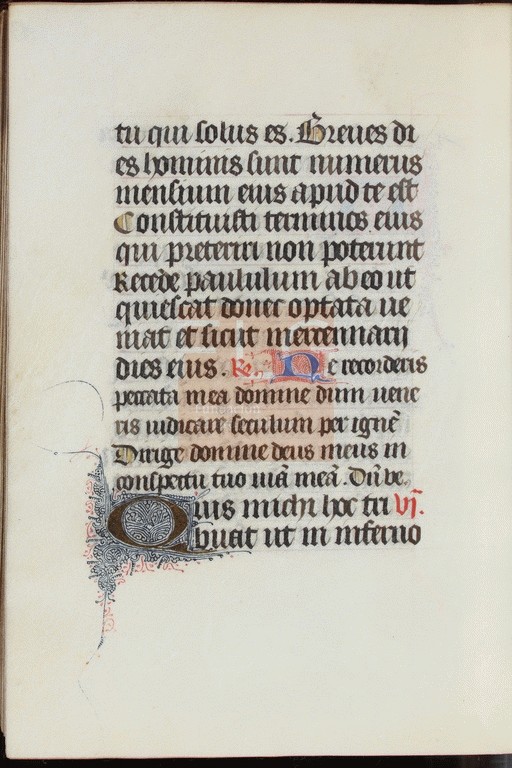 tu qui solus es. Breues di
es hominis sunt numerus
mensium eius apud te est
Constituisti terminos eius
qui preteriri non poterunt
Recede paululum ab eo ut
quiescat donec optata ue
niat et sicut mercennarij
dies eius. R. Ne recorderis
peccata mea domine dum uene
ris iudicare seculum per ignē
Dirige domine deus meus in
conspectu tuo uiā meā. Dū ve.
Quis michi hoc tri vj.
buat ut in inferno